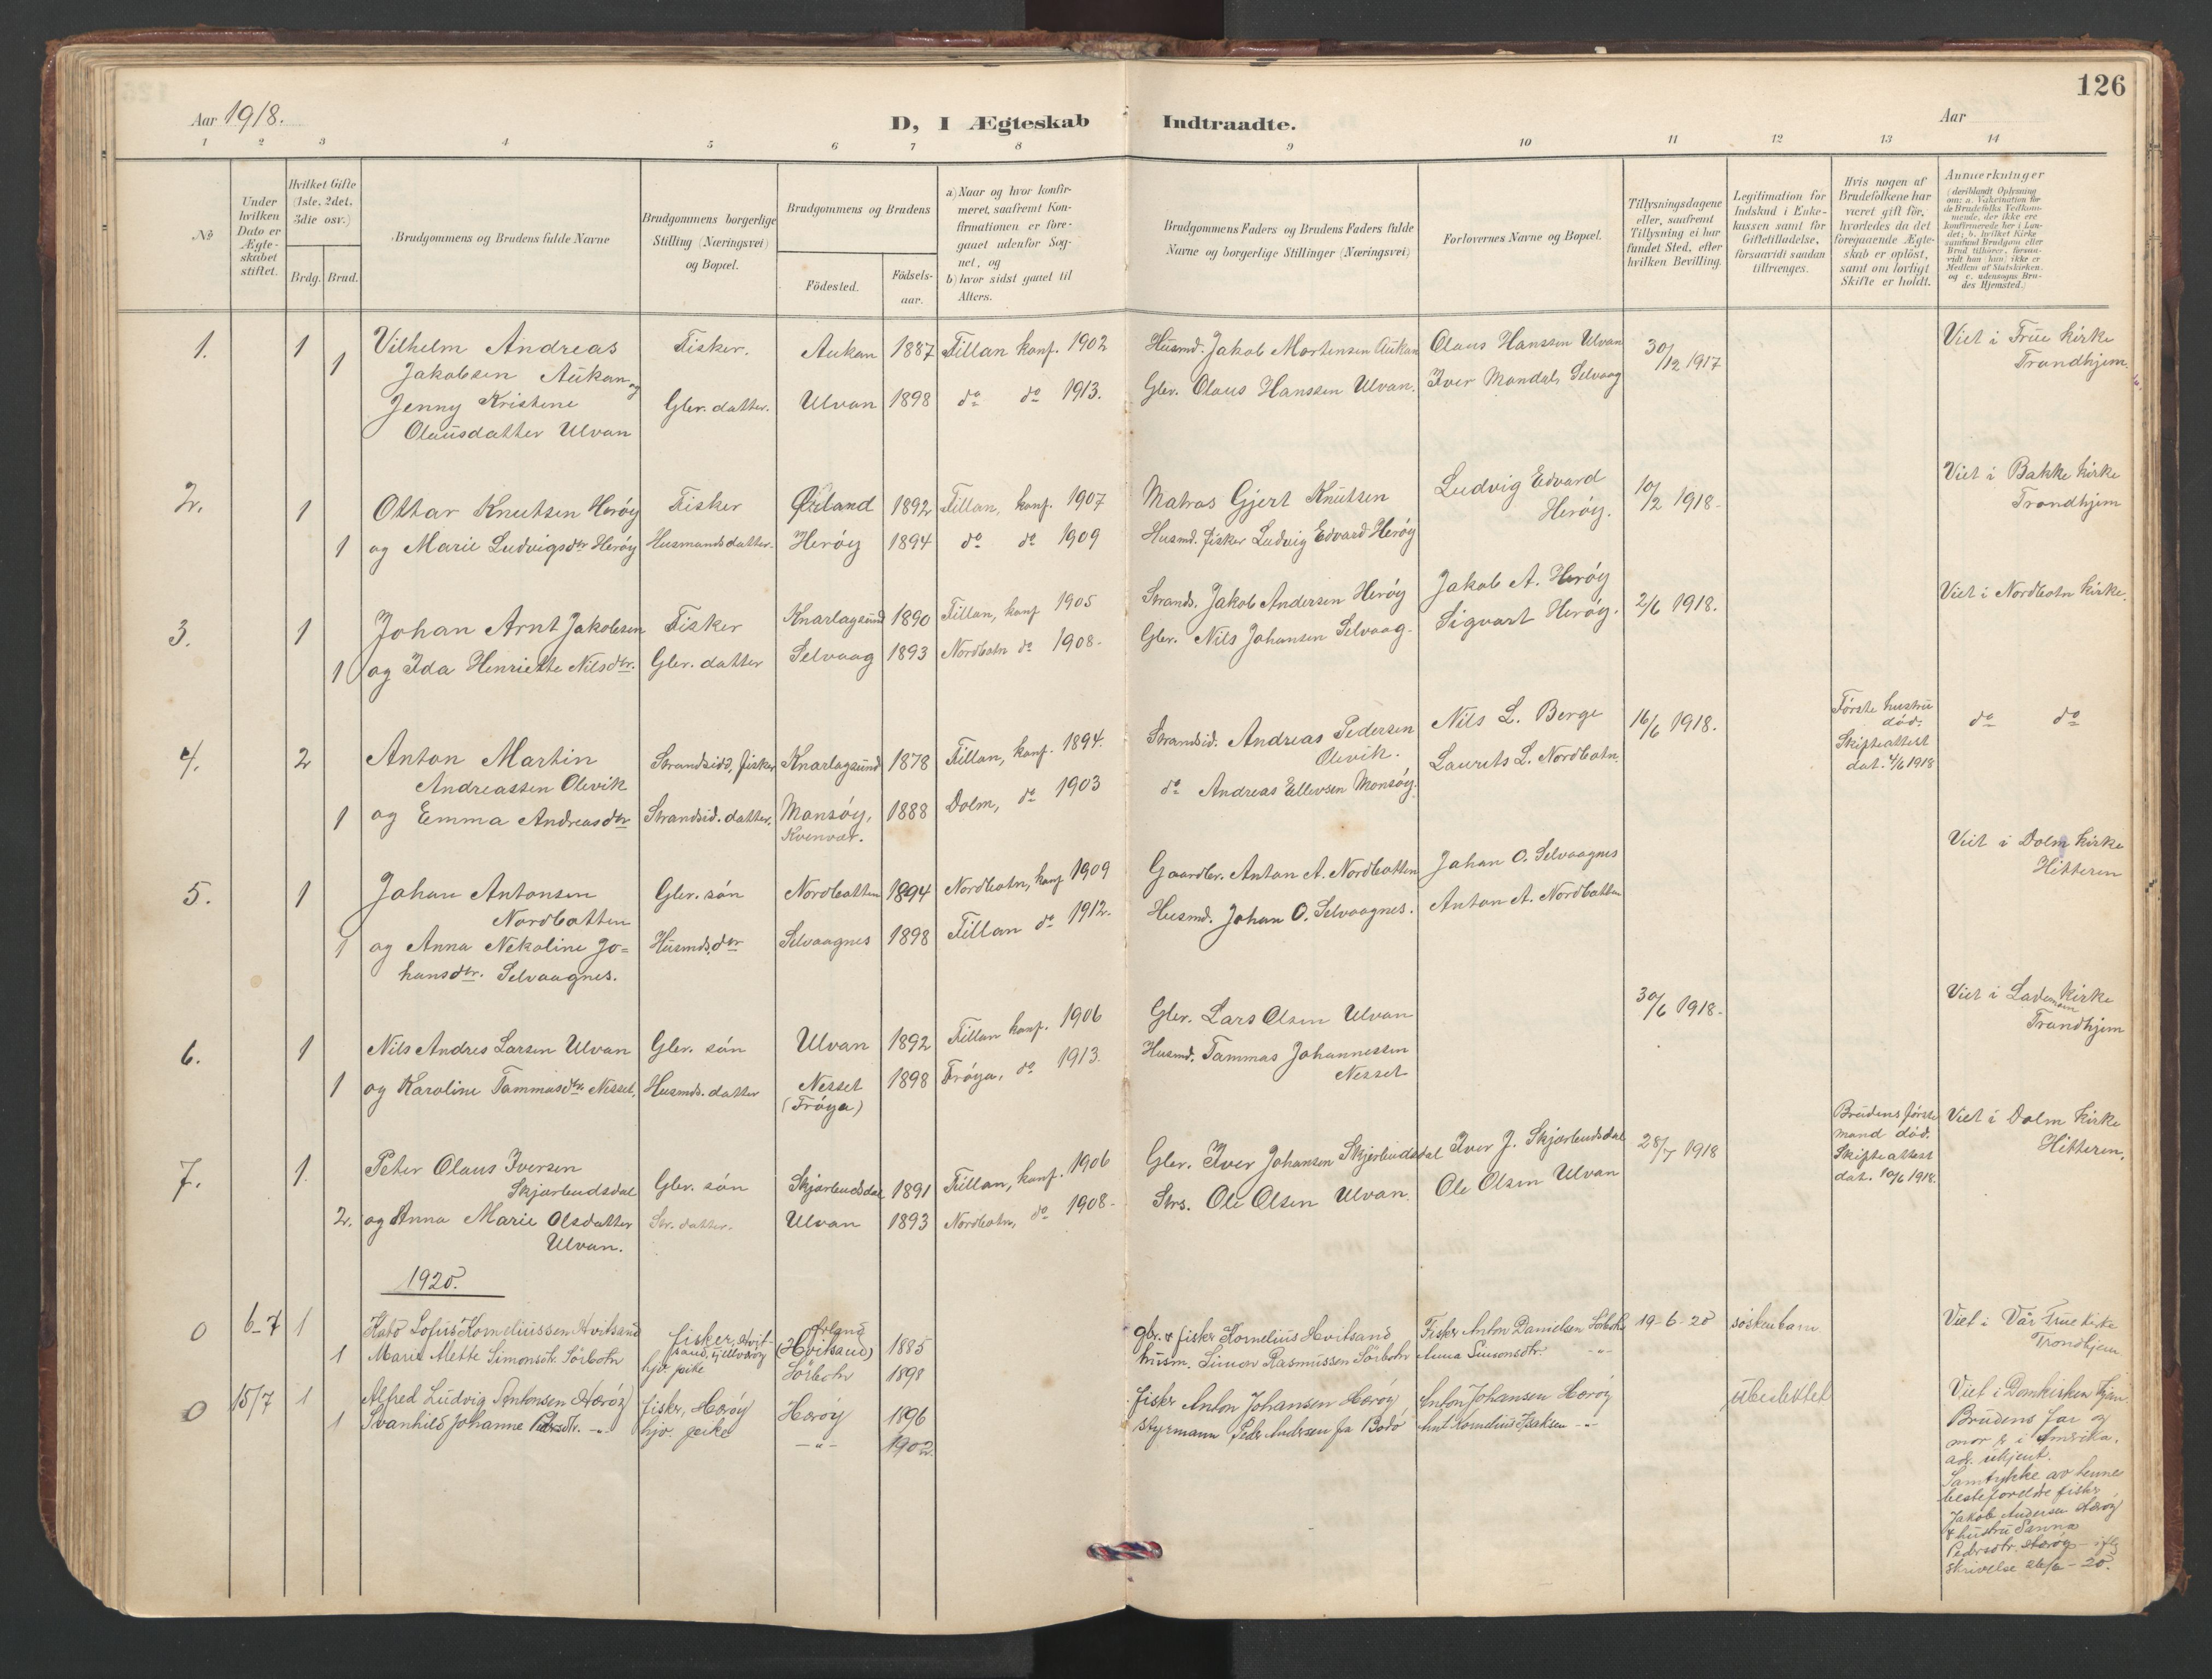 126
Aar 1918.
D, I Ægteskab Indtraadte.
Aar
1 2 3 4 5 6 7 8 9 10 11 12 13 14
No
Under hvilken Dato er Ægteskabet stiftet.
Hvilket Gifte (1ste, 2det, 3die osv.)
Brdg. Brud.
Brudgommens og Brudens fulde Navne
Brudgommens borgerlige Stilling (Næringsvei) og Bopæl.
Brudgommens og Brudens
Födested.
Födsels-aar.
a) Naar og hvor konfirmeret, saafremt Konfirmationen er foregaaet udenfor Sognet, og
b) hvor sidst gaaet til Alters.
Brudgommens Faders og Brudens Faders fulde Navne og borgerlige Stillinger (Næringsvei)
Forlovernes Navne og Bopæl.
Tillysningsdagene eller, saafremt Tillysning ei har fundet Sted, efter hvilken Bevilling.
Legitimation for Indskud i Enkekassen samt for Giftetilladelse, forsaavidt saadan tiltrænges.
Hvis nogen af Brudefolkene har været gift før, hvorledes da det foregaaende Ægteskab er oplöst, samt om lovligt Skifte er holdt.
Anmerkninger (deriblandt Oplysning om: a. Vakcination for de Brudefolks Vedkommende, der ikke ere konfirmerede her i Landet; b. hvilket Kirkesamfund Brudgom eller Brud tilhörer, forsaavidt han (hun) ikke er Medlem af Statskirken, og c. udensogns Brudes Hjemsted.)
1. 1 Vilhelm Andreas Fisker. Aukan 1887 Fillan konf. 1902 Husmd. Jakob Mortensen Aukan Olaus Hanssen Ulvan 30/12 1917 Viet i Frue kirke
1 Jakobsen Aukan og Trondhjem
Jenny Kristine Gbr. datter. Ulvan 1898 do do 1913. Gbr. Olaus Hanssen Ulvan. Iver Mandal, Selvaag
Olausdatter Ulvan
2. 1 Ottar Knutsen Herøy Fisker Ørland 1892 Fillan, konf. 1907 Matros Gjert Knutsen Ludvig Edvard Herøy. 10/2 1918. Viet i Bakke kirke Trondhjem
1 og Marie Ludvigsdtr Herøy Husmandsdatter. Herøy 1894 do do 1909 Husmd. fisker Ludvig Edvard Herøy
3. 1 Johan Arnt Jakobsen Fisker Knarlagsund 1890 Fillan, konf. 1905 Strands. Jakob Andersen Herøy Jakob A. Herøy 2/6 1918. Viet i Nordbotn kirke.
1 og Ida Henriette Nilsdtr. Gbr. datter Selvaag 1893 Nordbotn do 1908. Gbr. Nils Johansen Selvaag. Sigvart Herøy.
4. 2 Anton Martin Strandsidd, fisker Knarlagsund 1878 Fillan, konf. 1894. Strandsid. Andreas Pedersen Nils L. Berge 16/6 1918. Første hustru død. do do
Andreassen Olevik Olevik. Laurits L. Nordbotn. Skifteattest dat. 4/6 1918
1 og Emma Andreasdtr Strandsid. datter. Mansøy, Kvenvær. 1888 Dolm, do 1903 do Andreas Ellevsen Monsøy.
5. 1 Johan Antonsen Gbr. søn Nordbotten 1894 Nordbotn, konf 1909 Gaardbr. Anton A. Nordbotten Johan O. Selvaagnes Viet i Dolm kirke Hitteren
Nordbotten
1 og Anna Nekoline Jo= Husmds.dtr Selvaagnes 1898 Fillan do 1912. Husmd. Johan O. Selvaagnes. Anton A. Nordbotten
hansdtr. Selvaagnes.
6. 1 Nils Andres Larsen Ulvan Gbr. søn Ulvan 1892 Fillan konf. 1906 Gbr. Lars Olsen Ulvan 30/6 1918. Viet i Lademoen Kirke Trondhjem
1 og Karoline Tammasdtr. Nesset, Husmds. datter Nesset (Frøya) 1898 Frøya, do 1913. Husmd. Tammas Johannessen Nesset
7. 1. Peter Olaus Iversen Gbr. søn Skjærbudsdal 1891 Fillan, konf. 1906 Gbr. Iver Johansen Skjærbudsdal Iver J. Skjærbudsdal 28/7 1918 Brudens første mand død. Skifteattest dat. 10/6 1918. Viet i Dolm kirke Hitteren.
Skjærbudsdal
2. og Anna Marie Olsdatter Str. datter. Ulvan 1893 Nordbotn, do 1908. Strs. Ole Olsen Ulvan. Ole Olsen Ulvan
Ulvan.
1920.
0 6-7 1 Kato Sofus Korneliussen Hvitsand fisker, Hvitsand, Ørland (Hvitsand) 1885 gbr. & fisker Kornelius Hvitsand Fisker Anton Danielsen Sörbotn 19-6-20 söskenbarn Viet i Vår Frue kirke Trondhjem
1 Marie Alette Simonsdtr. Sörbotn hjv. pike Sörbotn 1898 husm. Simon Rasmussen Sörbotn Anna Simonsdtr. -"-
0 15/7 1 Alfred Ludvig Antonsen Herøy fisker, Herøy Herøy 1896 fisker Anton Johansen Herøy Anton Johansen Herøy ubeslektet Viet i Domkirken Tjem
1 Svanhild Johanne Pedersdtr. -"- hjv. pike -"- 1902 styrmann Peder Andersen fra Bodø Arnt Kornelius Isaksen -"- Brudens far og
mor er i Amerika,
adr. ukjent.
Samtykke av hennes
besteforeldre fisker
Jakob Andersen Herøy
& hustru Sanna
Pedersdtr. Herøy - iflg
skrivelse 26/6 - 20.